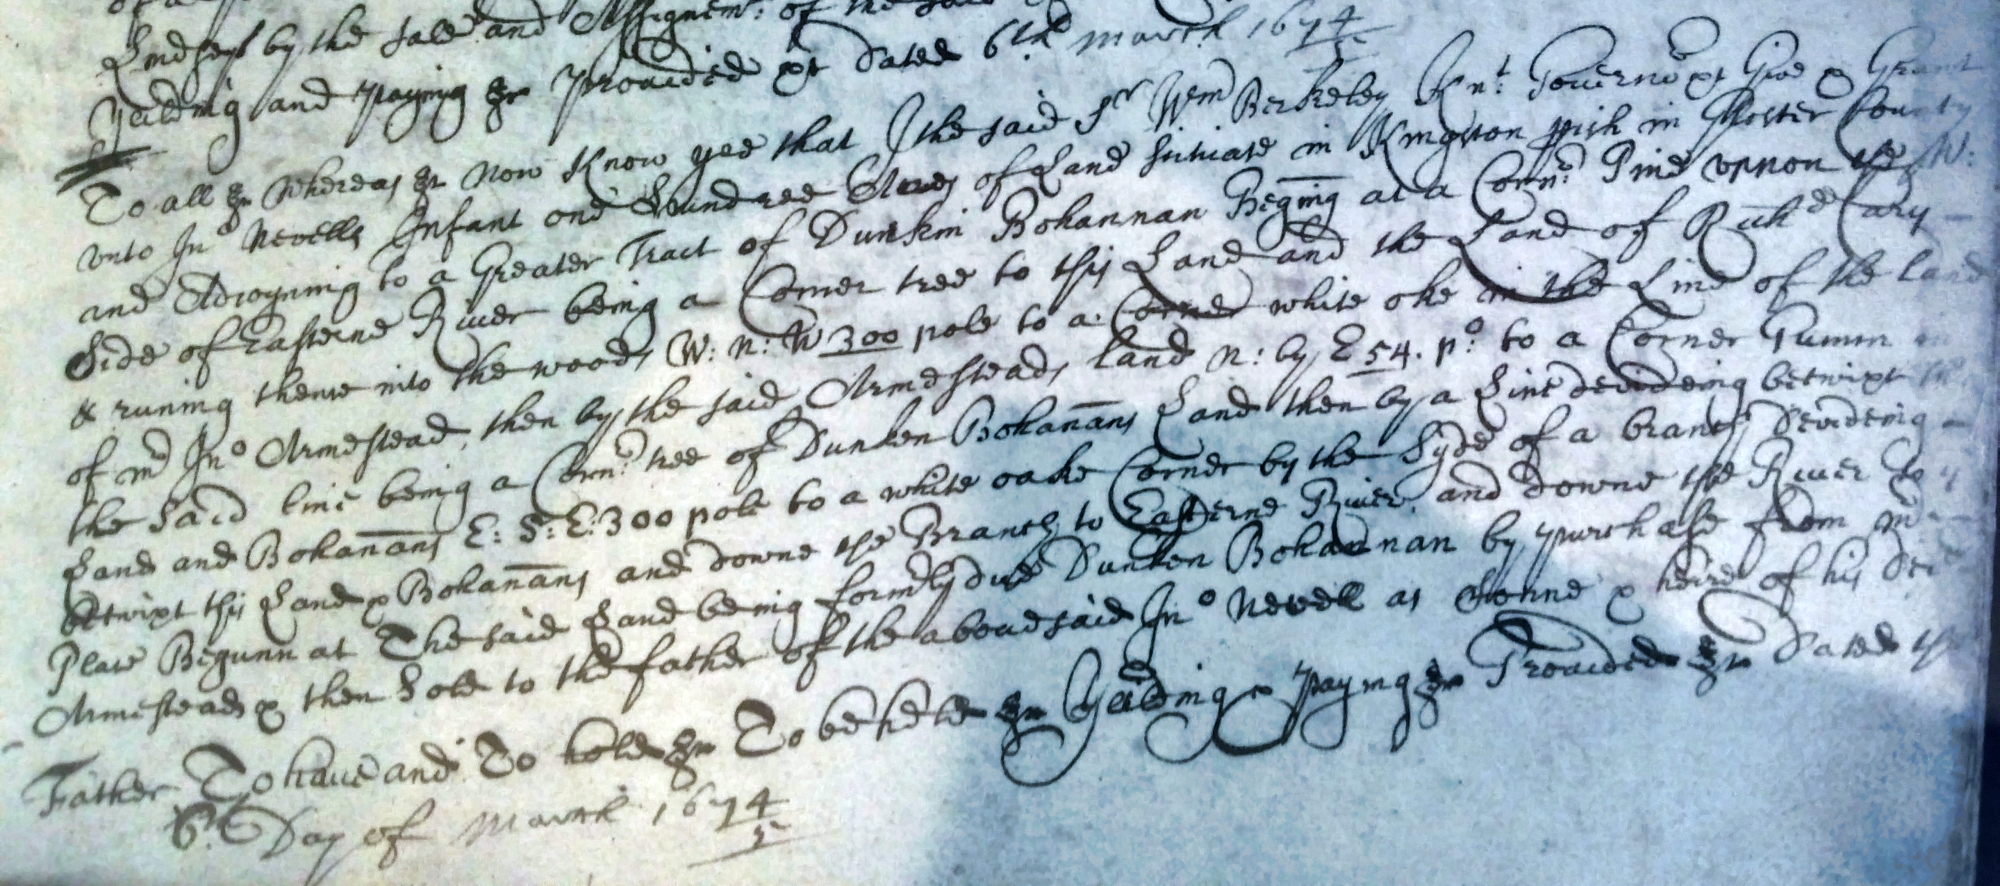 Lindsey by the sale and Assignemt: of the said
Yeilding and paying &c provided &c Dated 6th March 1674/5
To all &c Whereas &c Now Know yee that I the said Sr Wm Berkeley Knt: Governor &c Give & Grant
unto Jno Nevells Infant one Hundred Acres of Land Scituate in Kingston pish in Gloster County
and Adioyning to a Greater Tract of Dunkin Bohannan Begining at a Corn: Pine upnon the W:
Side of Easterne River being a Corner tree to this Land and the Land of Richd Cary
& runing thence into the woods W: N: W 300 pole to a Corner white oke in the Line of the Land
of mr Jno Armestead, then by the said Armesteads land N: by E 54. po: to a Corner Gumm in
the said line being a Corn: tree of Dunken Bohanans Land then by a Line devideing betwixt
Land and Bohanans E: S: E: 300 pole to a white oake Corner by the Syde of a branch Devideing
betwixt this Land & Bohanans and downe the Branch to Easterne River, and downe the River to
Place Begunn at The said Land being formerly due Dunken Bohannan by purchase from mr
Armestead & then Sold to the father of the abovesaid Jno Nevell as Sonne & heire of his
Father To have and To hold &c To be held &c Yeilding & paying &c Provided &c Dated the
6th Day of March 1674/5